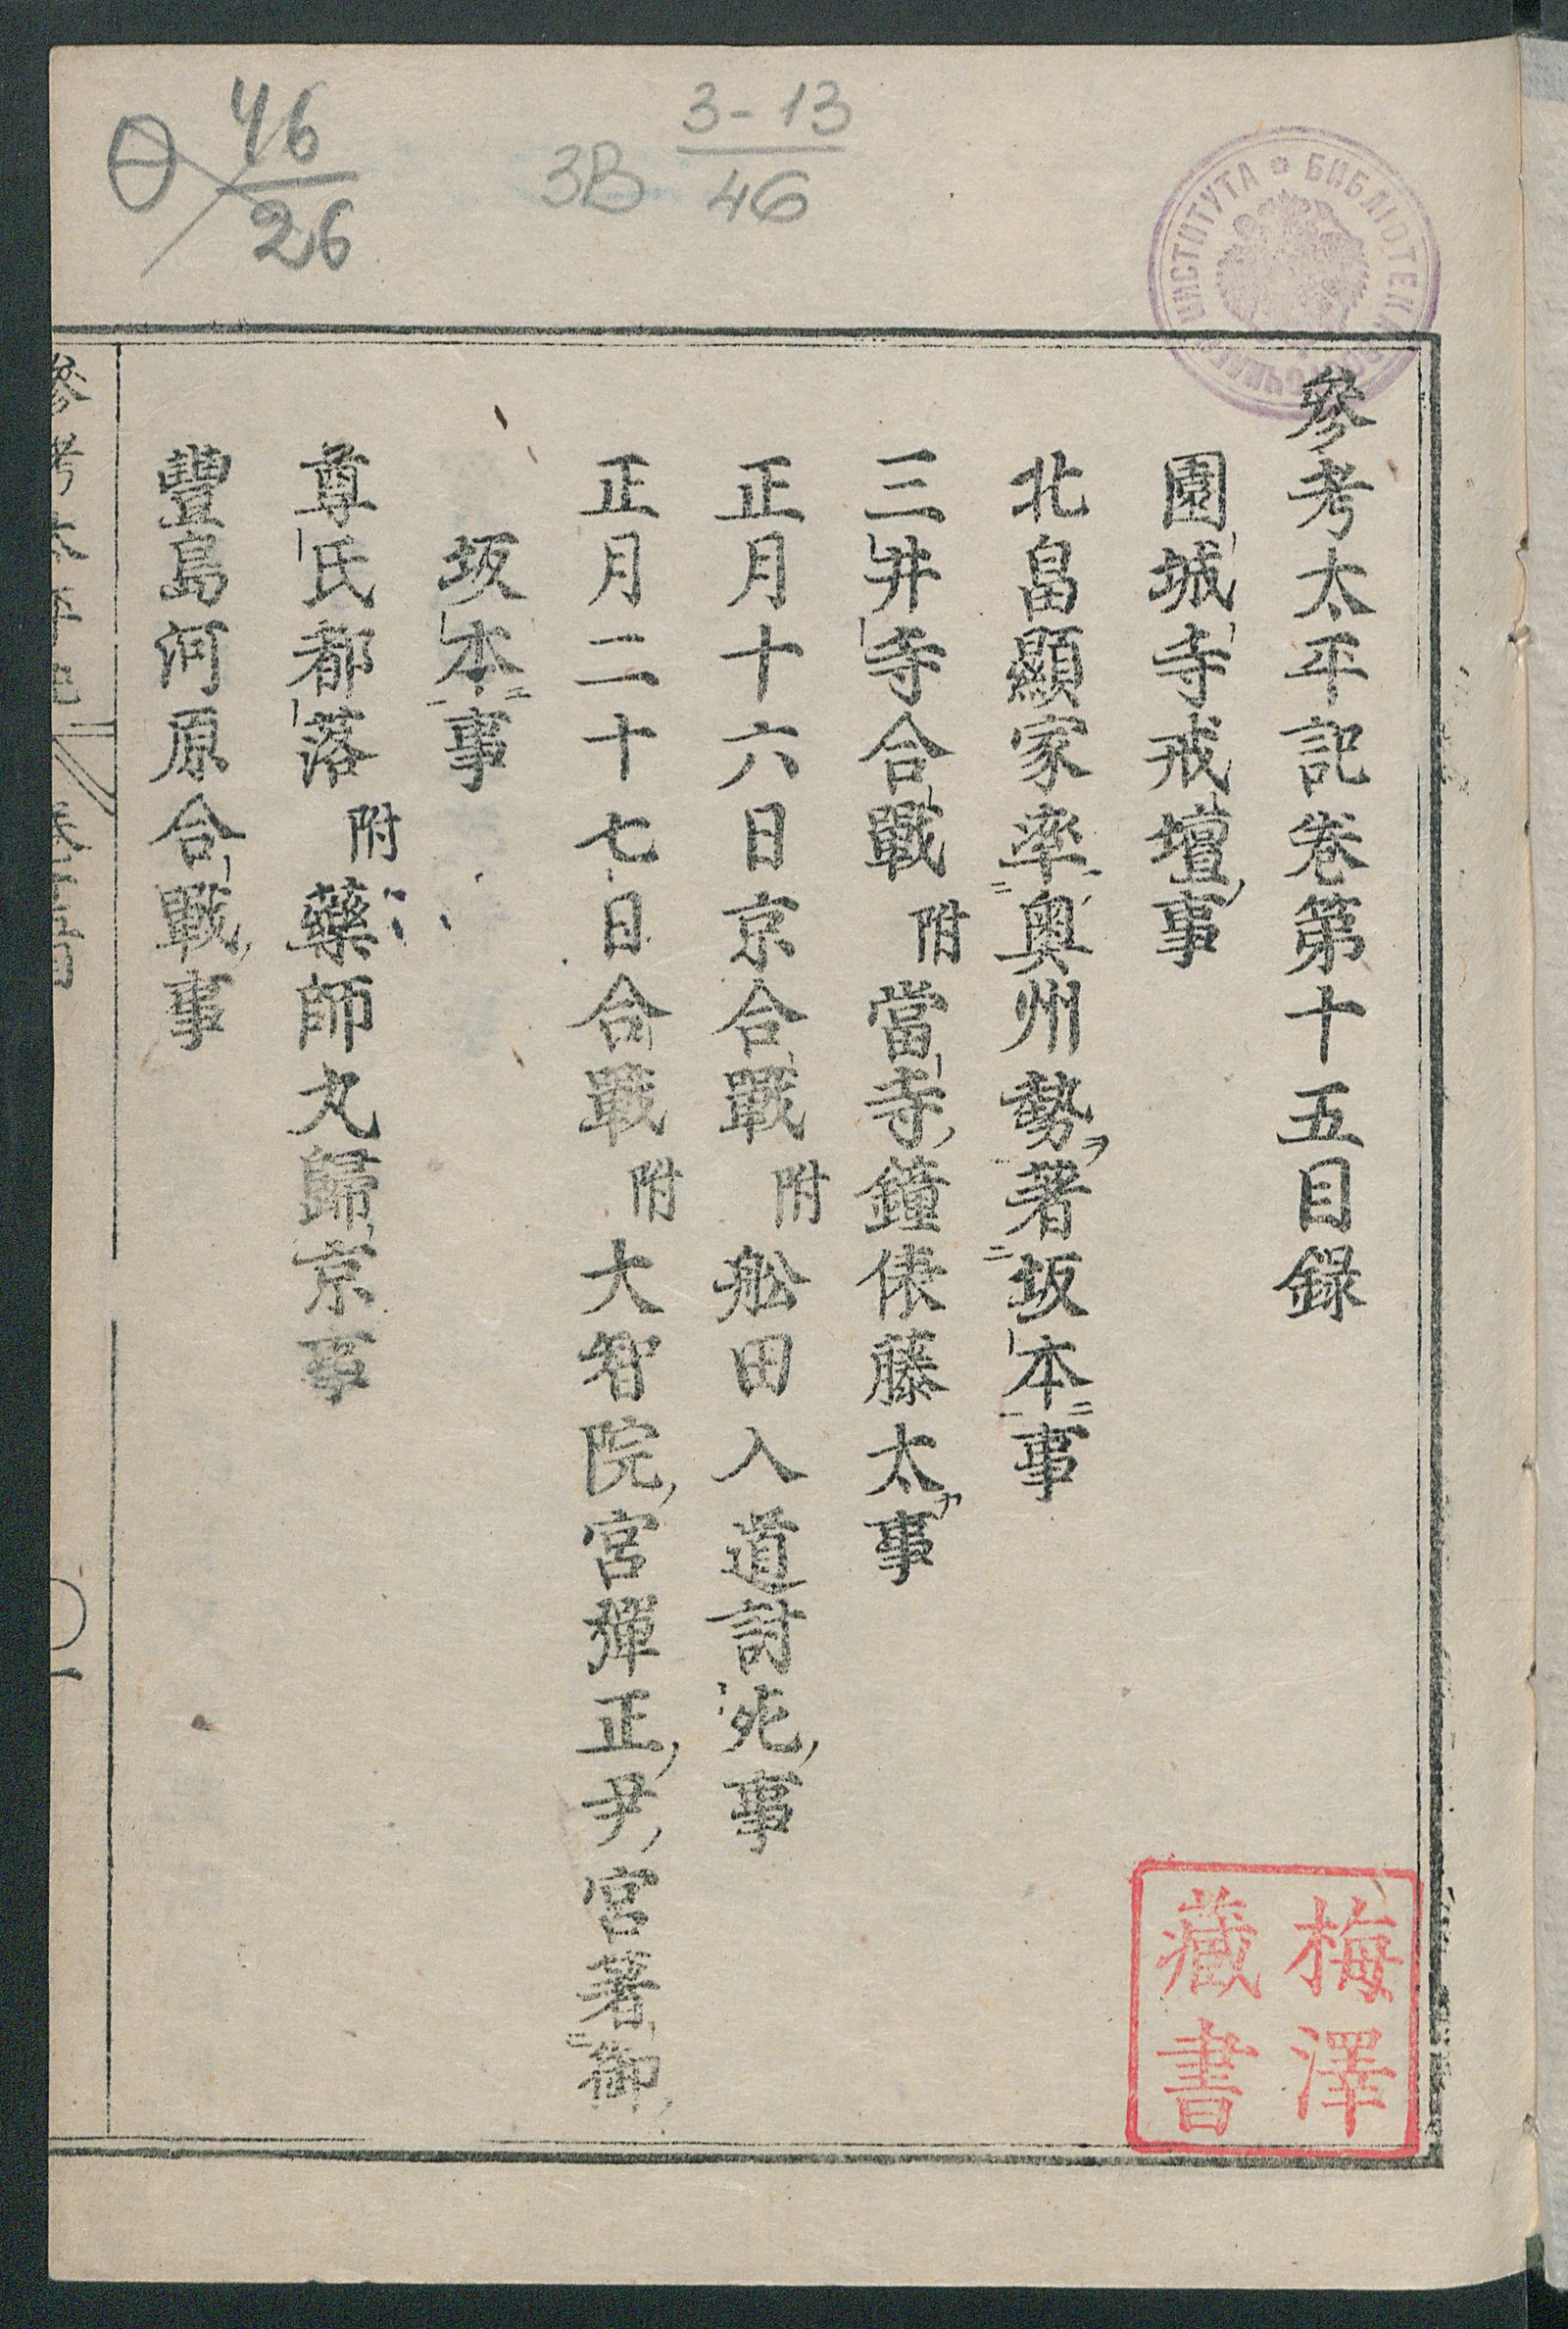 參考太平記卷第十五目錄
園城寺戒壇事
北畠顯家率奧州勢著坂本事
三井寺合戰附當寺鐘俵藤太事
正月十六日京合戰附舩田入道討死事
正月二十七日合戰附大智院宮彈正尹宮著御
坂本事
尊氏都落附藥師丸歸京事
豐島河原合戰事
梅澤
藏書
46
26
3В 3-13
46
БИБЛІОТЕКА
ИНСТИТУТА